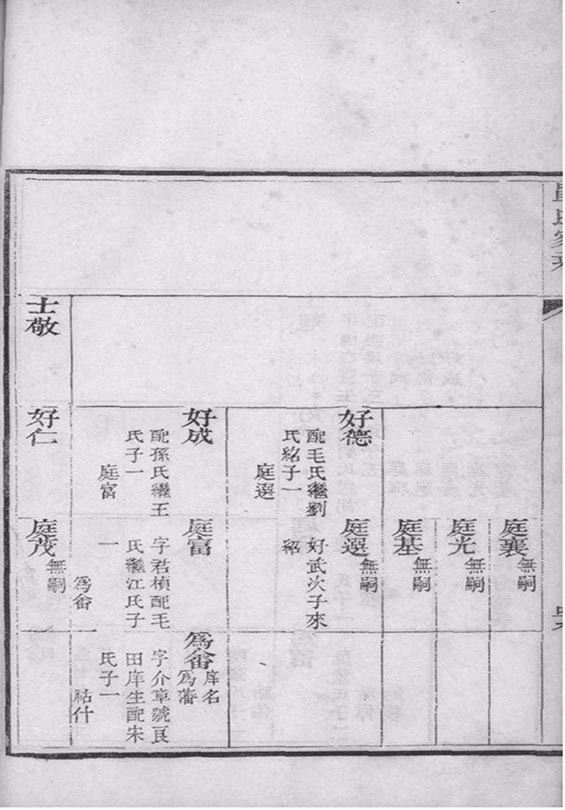 庭襄無嗣
庭光無嗣
庭基無嗣
好德
配毛氏繼劉
氏紹子一
庭選
庭選
好武次子來
紹
好成
配孫氏繼王
氏子一
庭富
庭富
字君楨配毛
氏繼江氏子
一
爲畬
爲畬
庠名
爲
字介草號艮
田庠生配朱
氏子一
祜什
士敬
好仁
庭茂無嗣